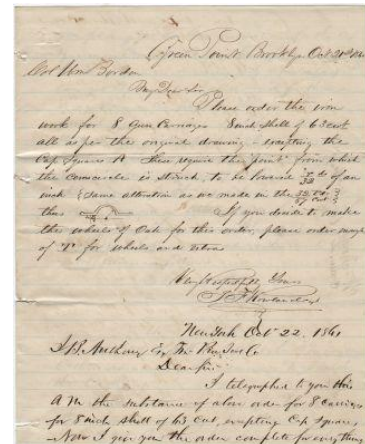 Green Point Brooklyn Oct 21st 1861
Col Wm Borden
My Dear Sir
Please order the iron
work for 8 Gun Carriages 8 inch shell of 63 cwt
all as per the original drawing - excepting the
Cap Squares A these require the "point" from which
the semicircle is struck, to be lowered of an
inch (same alteration as we made in the
thus If you decide to make
the wheels of Oak for this order, please order
of "I" for wheels and
Very Respectfully Yours
T F Rowland
New York Oct 22. 1861
Esq
Dear Sir
I telegraphed to you this
A M the substance of above order for 8 carriages
for 8 inch shell of 63 Cwt, excepting Cap Squares,
- Now I give you the order complete for everything